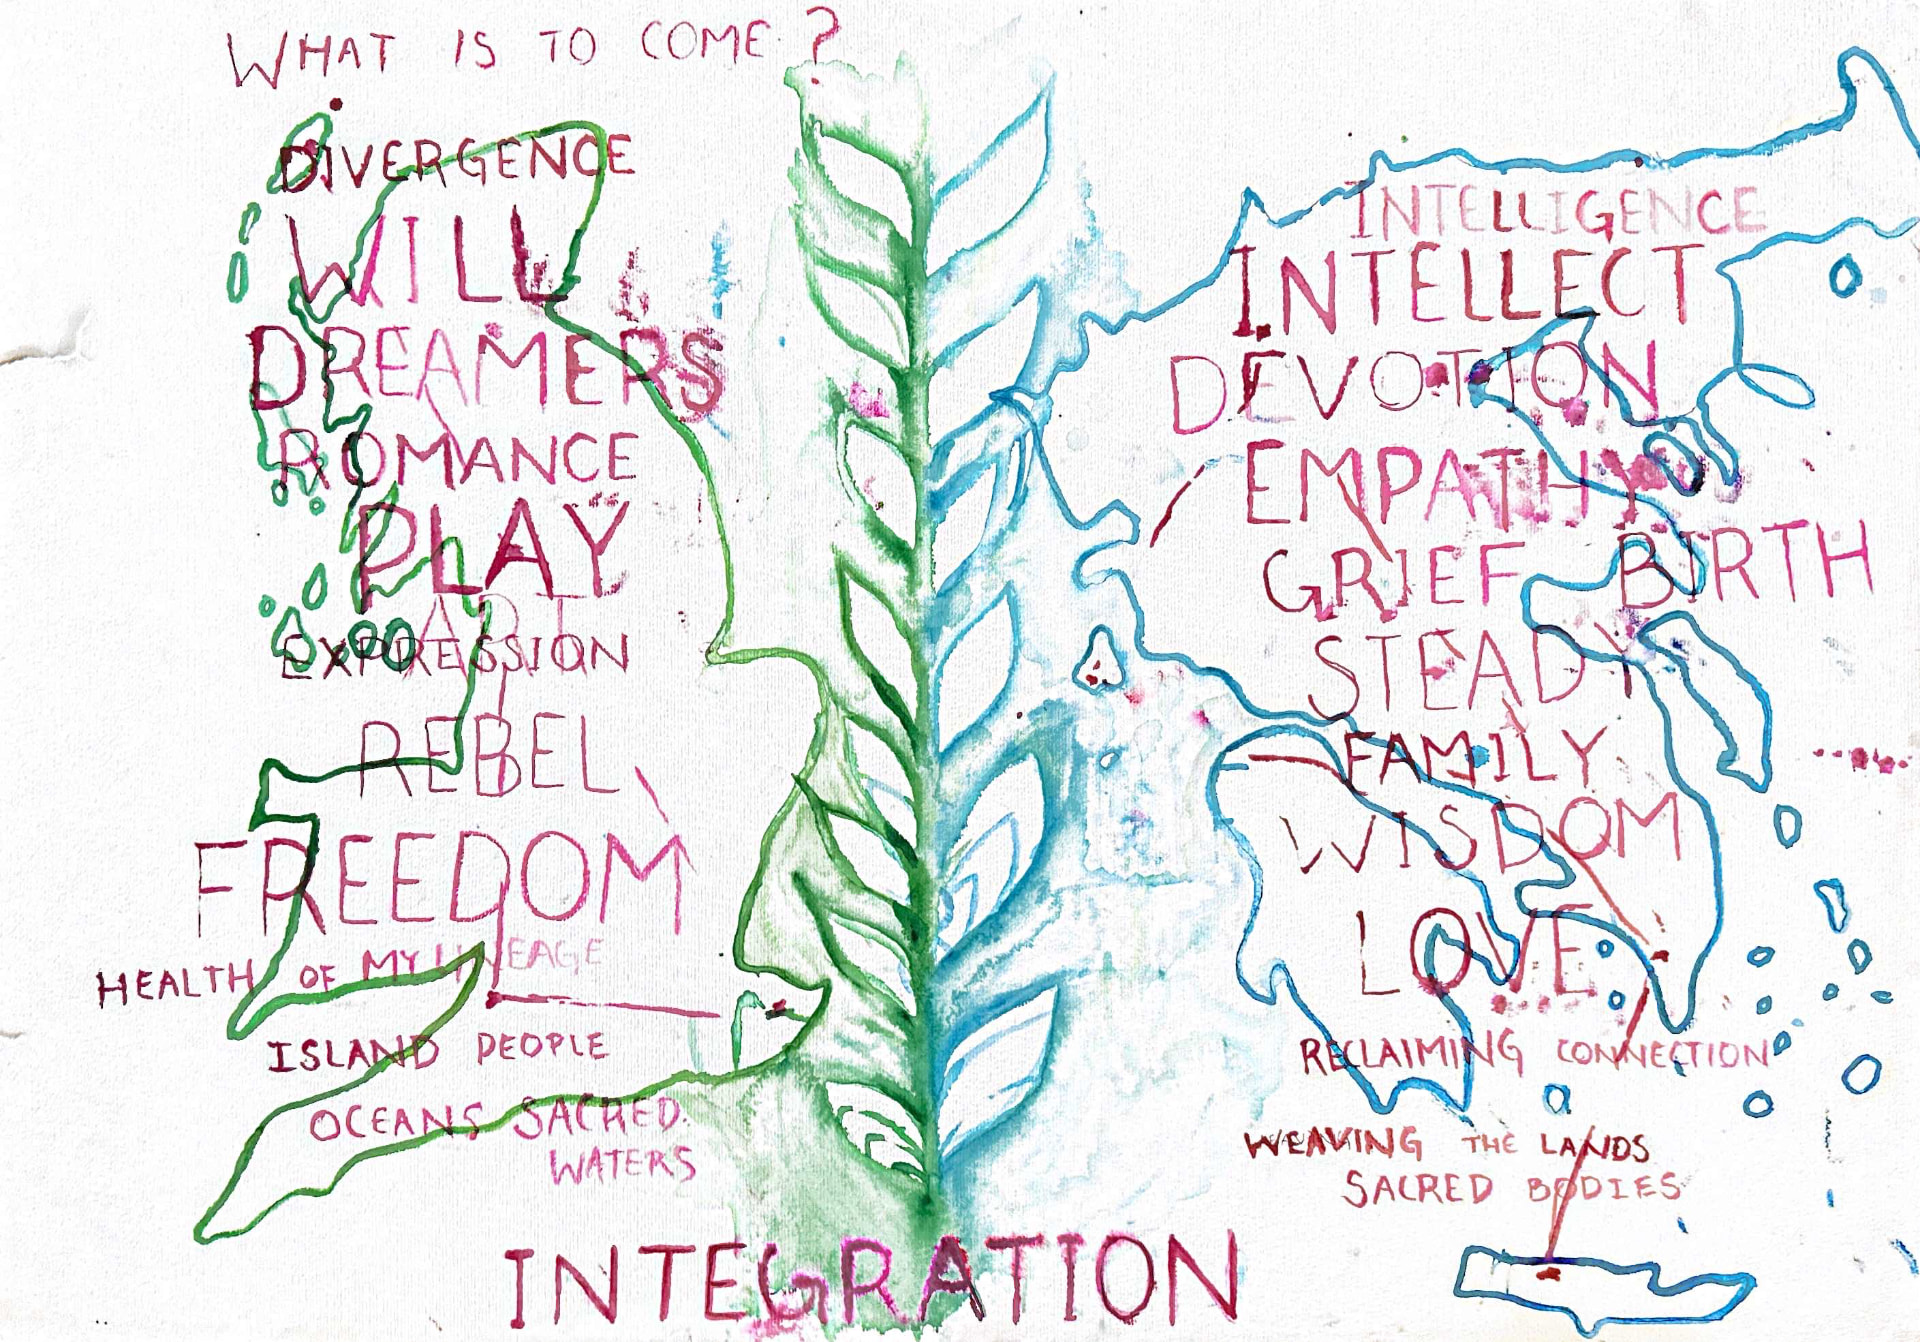 WHAT IS TO COME ?
DIVERGENCE
WILL
DREAMERS
ROMANCE
PLAY
ART
EXPRESSION
REBEL
FREEDOM
HEALTH OF MY LINEAGE
ISLAND PEOPLE
OCEANS SACRED
WATERS
INTELLIGENCE
INTELLECT
DEVOTION
EMPATHY
GRIEF BIRTH
STEADY
FAMILY
WISDOM
LOVE
RECLAIMING CONNECTION
WEAVING THE LANDS
SACRED BODIES
INTEGRATION